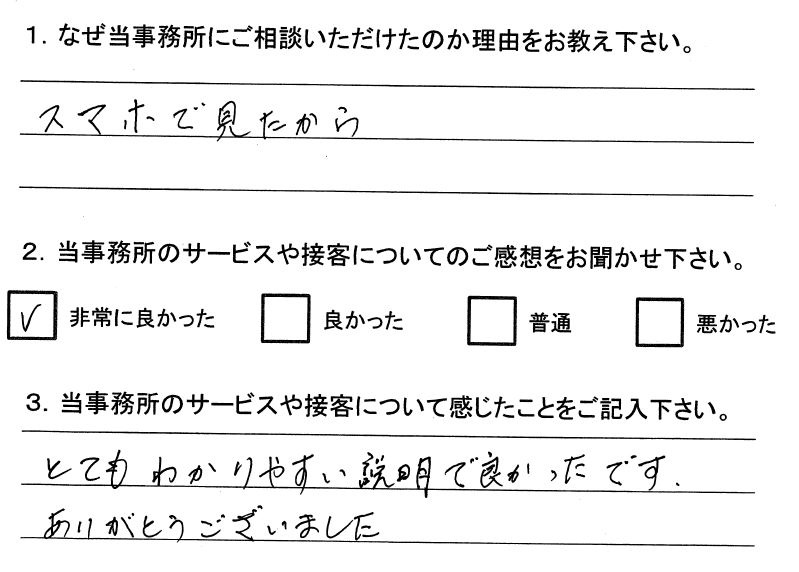 1. なぜ当事務所にご相談いただけたのか理由をお教え下さい。
スマホで見たから
2. 当事務所のサービスや接客についてのご感想をお聞かせ下さい。
✓ 非常に良かった □ 良かった □ 普通 □ 悪かった
3. 当事務所のサービスや接客について感じたことをご記入下さい。
とてもわかりやすい説明で良かったです.
ありがとうございました